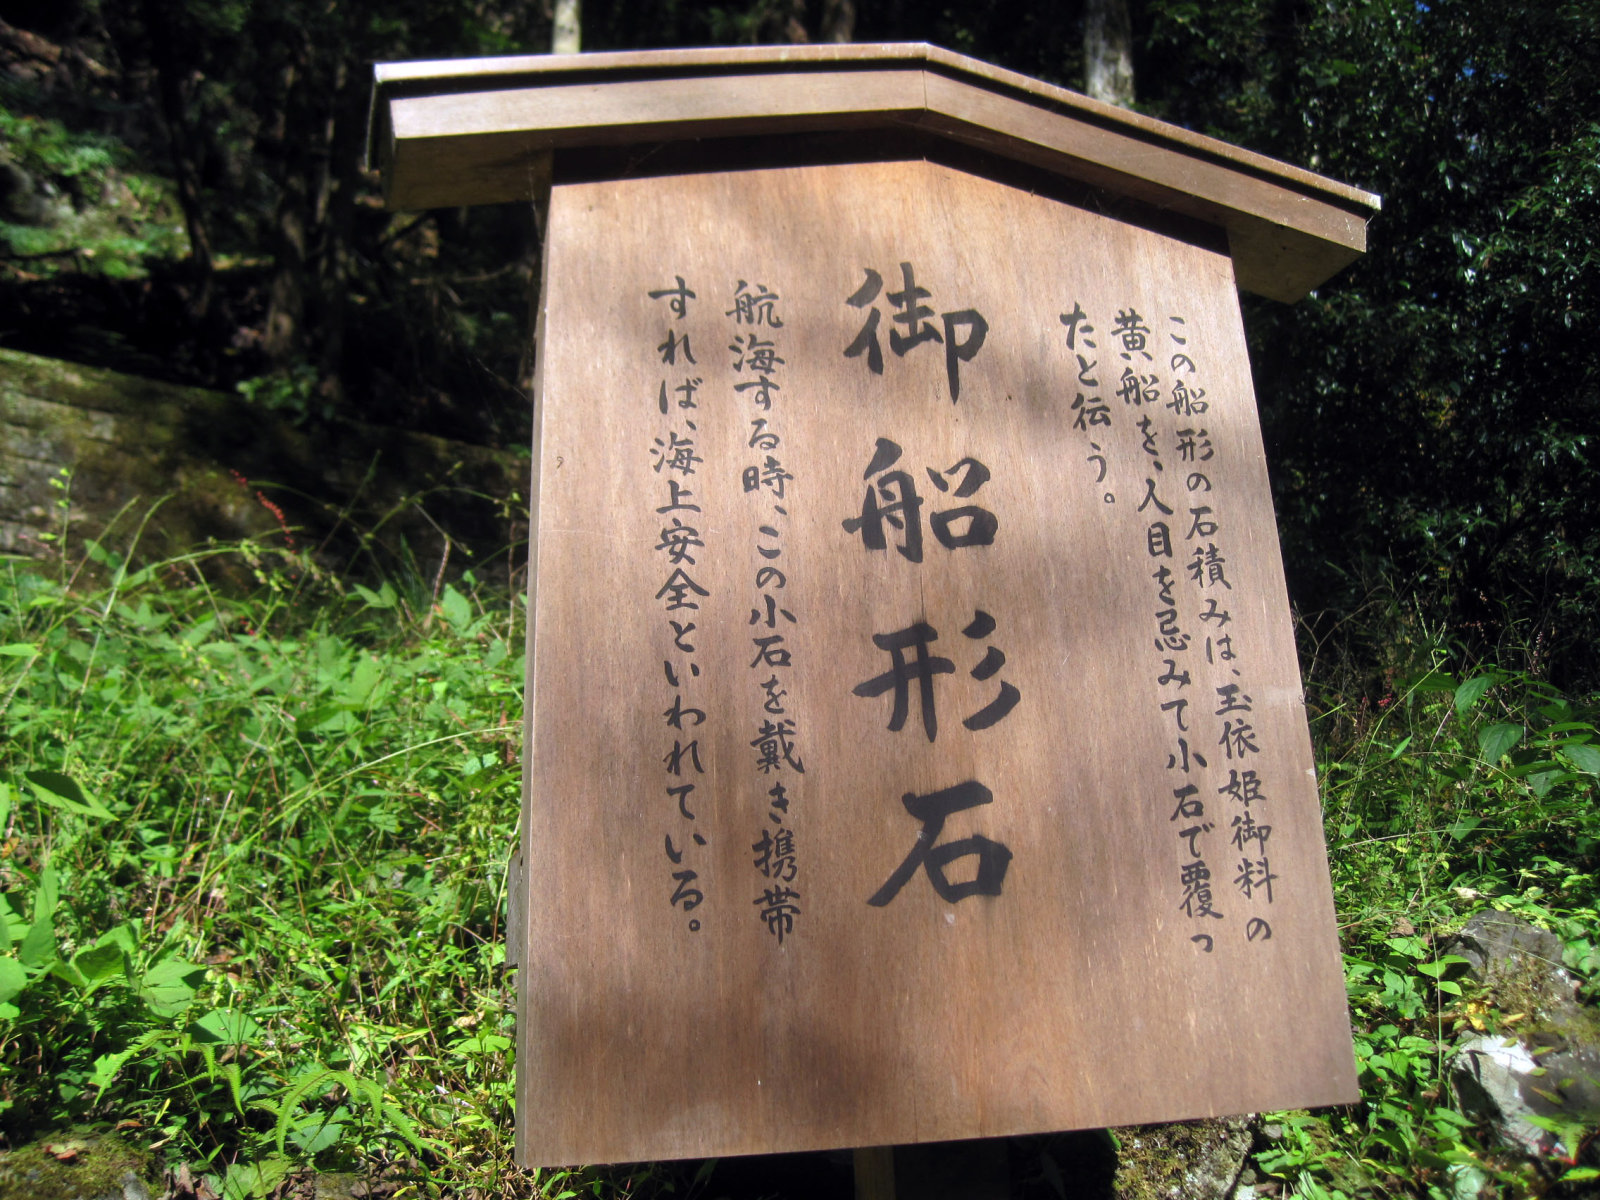 この船形の石積みは、玉依姫御料の
黄船を、人目を忌みて小石で覆っ
たと伝う。
御船形石
航海する時、この小石を戴き携帯
すれば、海上安全といわれている。